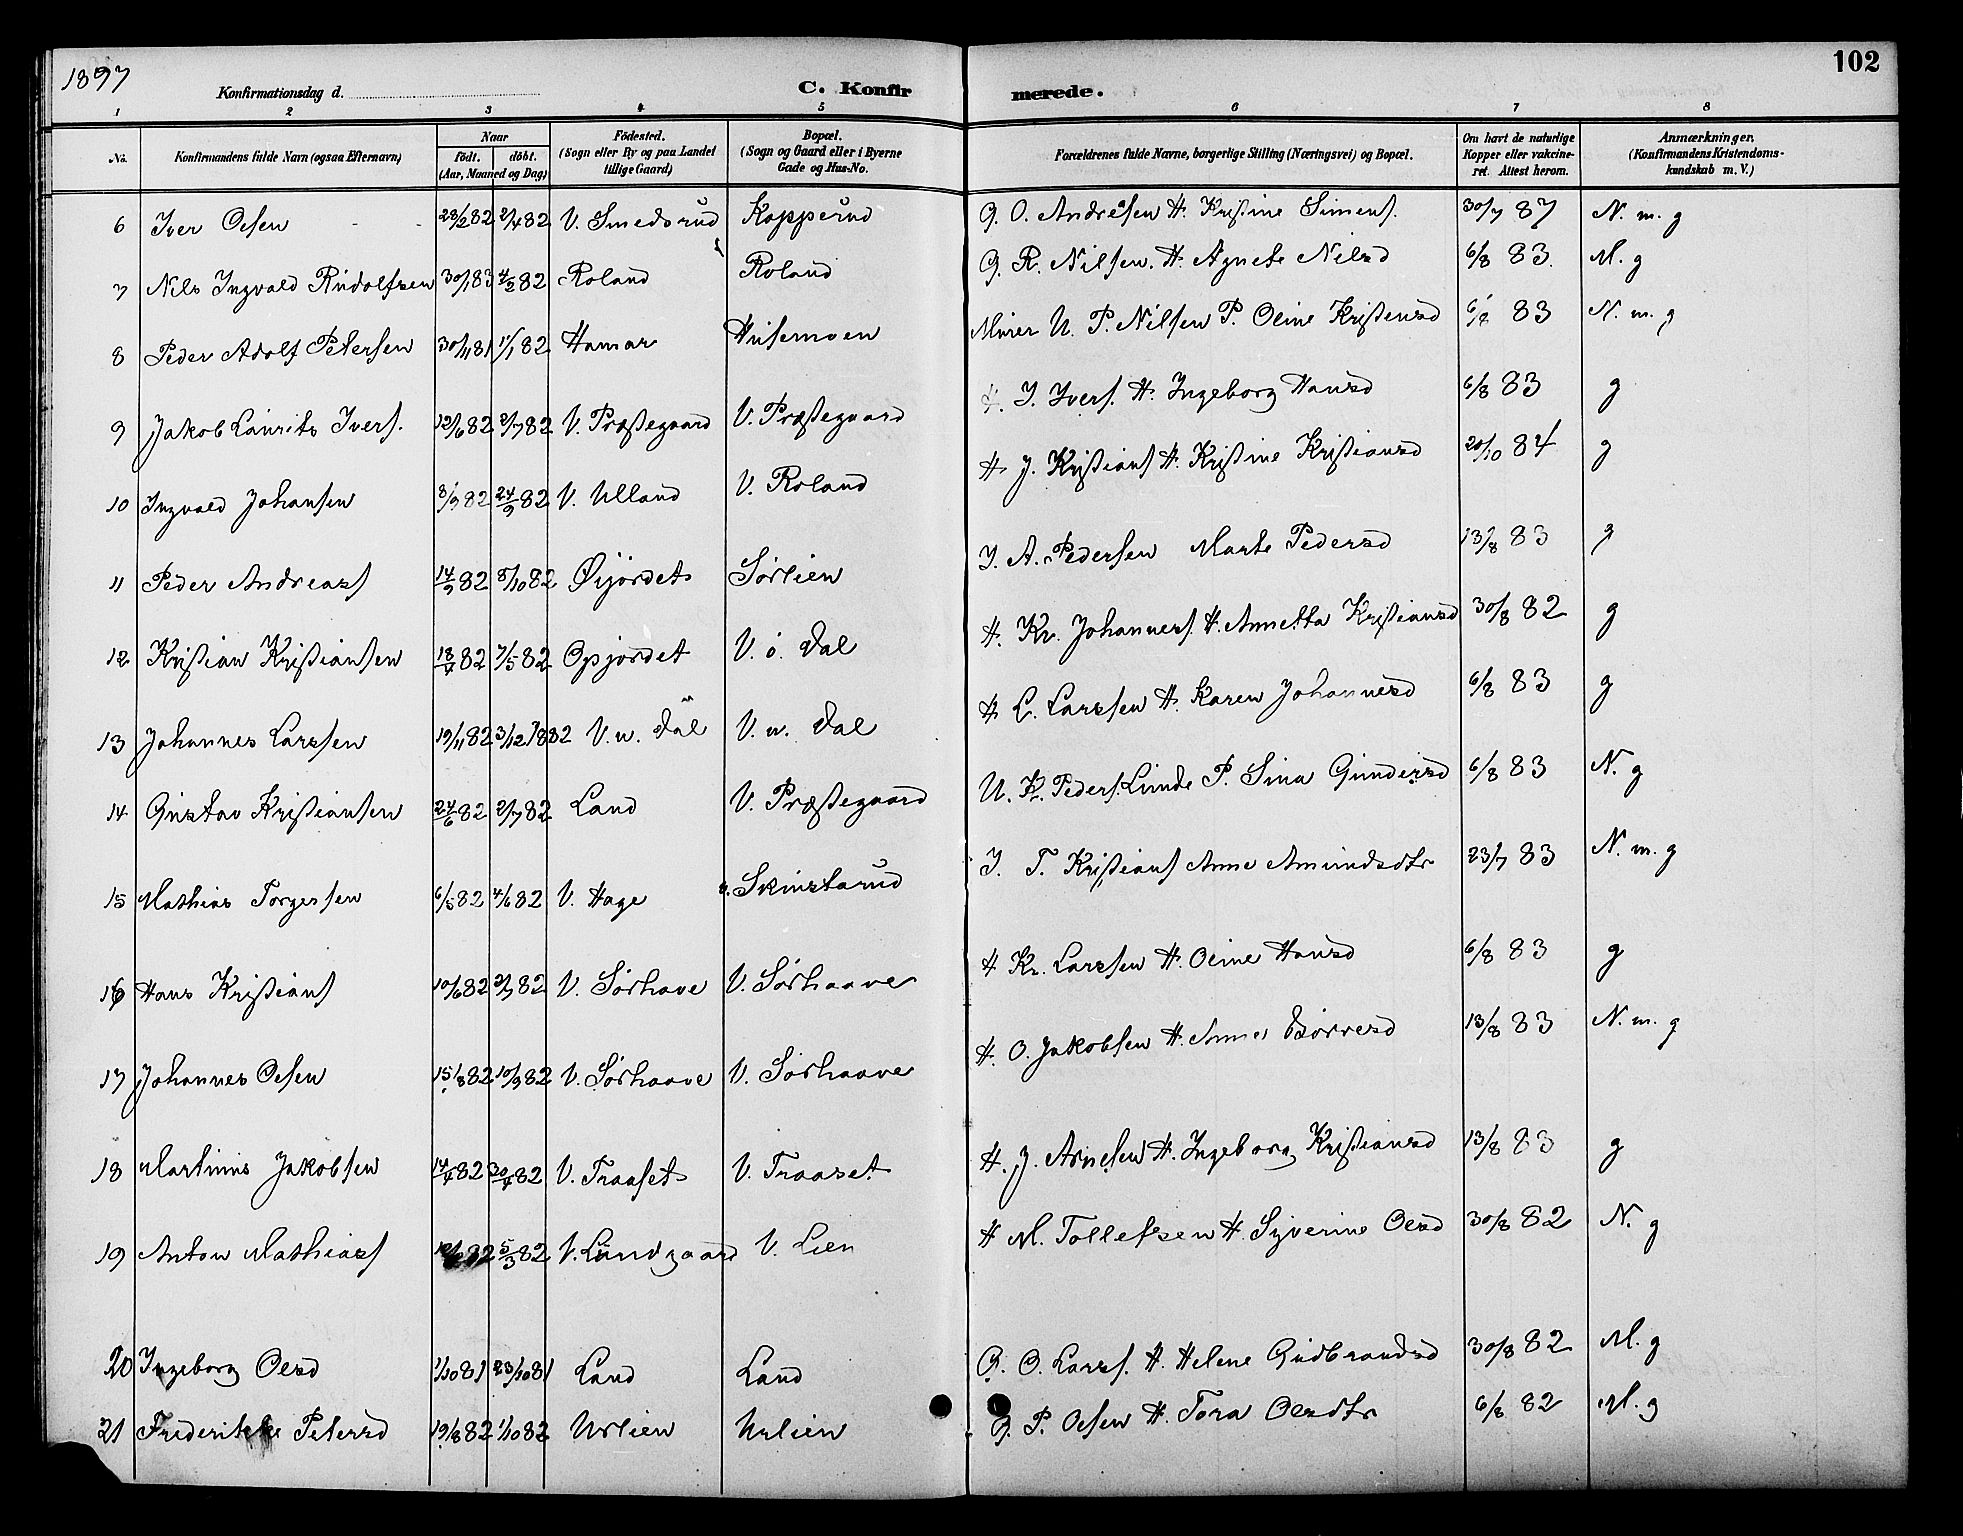 1897
102
Konfirmationsdag d.
C. Konfirmerede.
1 2 3 4 5 6 7 8
No. Konfirmandens fulde Navn (ogsaa Efternavn) Naar født. døbt. (Aar, Maaned og Dag) Fødested. (Sogn eller By og paa Landet tillige Gaard) Bopæl. (Sogn og Gaard eller i Byerne Gade og Hus-No. Forældrenes fulde Navne, borgerlige Stilling (Næringsvei) og Bopæl. Om havt de naturlige Kopper eller vakcineret. Attest herom. Anmærkninger. (Konfirmandens Kristendomskundskab m. V.)
6 Iver Olsen 28/2 82 2/4 82 V. Smedsrud Kopperud G. O. Andresen H. Kristine Simens. 30/7 87 N. m. g
7 Nils Ingvald Rudolfsen 30/1 83 4/3 82 Roland Roland G. R. Nilsen. H. Agnete Nilsd 6/8 83. M. g
8 Peder Adolf Petersen 30/11 81 1/1 82 Hamar Husemoen Murer U. P. Nilsen P. Oline Kristensd 6/8 83 N. m. g
9 Jakob Laurits Ivers. 12/6 82 2/7 82 V. Præstegaard V. Præstegaard H. I. Ivers. H. Ingeborg Hansd 6/8 83 g
10 Ingvald Johansen 3/9 82 24/9 82 V. Ulland V. Roland H J. Kristians H. Kristine Kristiansd 20/10 84 g
11 Peder Andreass 14/9 82 8/10 82 Øijordet Sørlien I. A. Pedersen Marte Pedersd 13/8 83 g
12 Kristian Kristiansen 18/4 82 7/5 82 Opjordet V. ö. Dal H. Kr. Johanness. H. Annetta Kristiansd 30/8 82 g
13 Johannes Larssen 19/11 82 3/12 1882 V. n. Dal V. n. Dal H L. Larssen H. Karen Johannesd 6/8 83 g
14 Gustav Kristiansen 24/6 82 2/7 82 Land V. Præstegaard U. K. Peders. Linde P. Sina Gundersd 6/8 83 N. g
15 Mathias Torgersen 6/5 82 4/6 82 V. Hage Skinstarud I. T. Kristians Anne Amundsdtr 23/7 83 N. m. g
16 Hans Kristians 10/6 82 2/7 82 V. Sørhave V. Sørhaave H Kr. Larssen H. Oline Hansd 6/8 83 g
17 Johannes Olsen 15/8 82 10/9 82 V. Sørhaave V. Sørhaave H. O. Jakobsen H. Anne Børresd 13/8 83 N. m. g
18 Martinus Jakobsen 14/4 82 30/4 82 V. Traaset V. Traaset H. J. Arnesen H. Ingeborg Kristiansd 13/8 83 g
19 Anton Mathiass 82 5/3 82 V. Lundgaard V. Lien H M. Tollefsen H. Syverine Olsd 30/8 82 N. g
20 Ingeborg Olsd 1/10 81 23/10 81 Land Land G. O. Larss. H. Helene Gudbrandsd 30/8 82 M. g
21 Frederikke Petersd 19/8 82 1/10 82 Urlien Urlien G. P. Olsen H. Tora Olsdtr 6/8 82 M. g